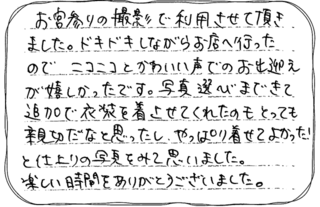 お宮参りの撮影で利用させて頂き
ました。ドキドキしながらお店へ行った
ので ニコニコとかわいい声でのお出迎え
が嬉しかったです。写真選びまできて
追加で衣装を着させてくれたのもとっても
親切だなと思ったし、やっぱり着せてよかった!
と仕上りの写真をみて思いました。
楽しい時間をありがとうございました。